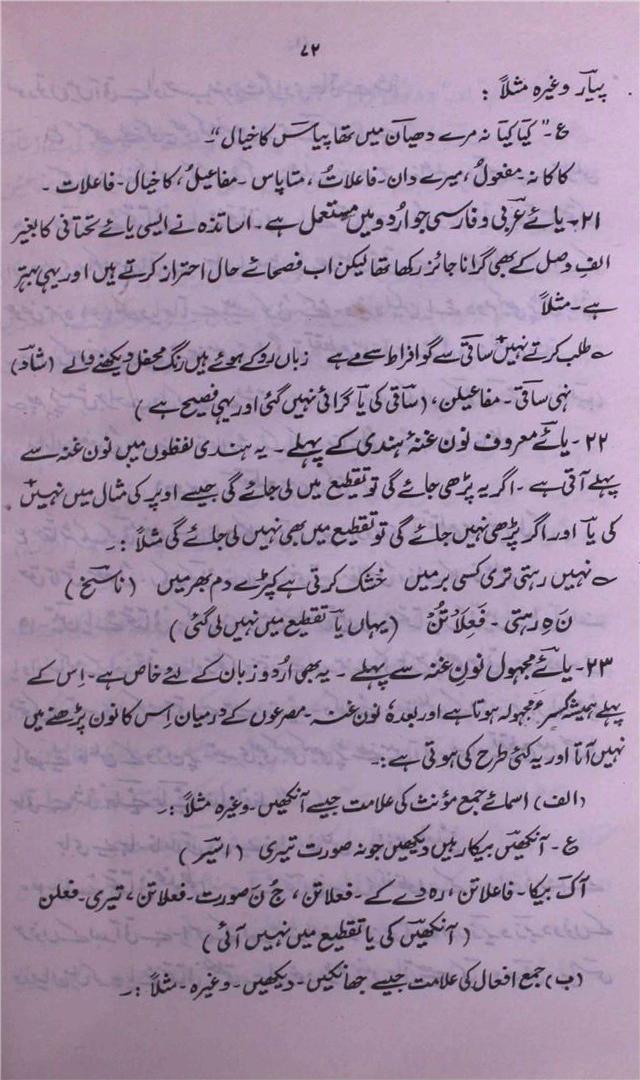 ۷۲
پیار وغیرہ مثلاً :
ع۔ "کیا کیا نہ مرے دھیان میں تھا پیاس کا خیال"۔
کا کا نہ۔ مفعولُ، میرے دان۔ فاعلاتُ، متا پاس۔ مفاعیلُ، کا خیال۔ فاعلات ۔
۲۱۔ یائے عربی و فارسی جو اردو میں مستعمل ہے۔ اساتذہ نے ایسی یائے تحتانی کا بغیر
الف وصل کے بھی گرانا جائز رکھا تھا لیکن اب فصحائے حال احتراز کرتے ہیں اور یہی بہتر
ہے۔ مثلاً
؎ طلب کرتے نہیں ساقی سے گو افراط سے مے ہے زباں روکے ہوئے ہیں رنگ محفل دیکھنے والے (شاد)
نہی ساقی۔ مفاعیلن، (ساقی کی یا گرائی نہیں گئی اور یہی فصیح ہے)
۲۲۔ یائے معروف نون غنہٴ ہندی کے پہلے ۔ یہ ہندی لفظوں میں نون غنہ سے
پہلے آتی ہے ۔ اگر یہ پڑھی جائے گی تو تقطیع میں لی جائے گی جیسے اوپر کی مثال میں نہیں
کی یا اور اگر پڑھی نہیں جائے گی تو تقطیع میں بھی نہیں لی جائے گی مثلاً :۔
؎ نہیں رہتی تری کسی بر میں خشک کرتی ہے کپڑے دم بھر میں (ناسخ)
نَہِ رہتی ۔ فَعِلَاتُنْ (یہاں یا تقطیع میں نہیں لی گئی)
۲۳۔ یائے مجہول نون غنہ سے پہلے ۔ یہ بھی اُردو زبان کے لئے خاص ہے۔ اِس کے
پہلے ہمیشہ کسرہٴ مجہولہ ہوتا ہے اور بعدہٗ نون غنہ۔ مصرعوں کے درمیان اِس کا نون پڑھنے میں
نہیں آتا اور یہ کئی طرح کی ہوتی ہے :۔
(الف) اسمائے جمع مؤنث کی علامت جیسے آنکھیں۔ وغیرہ مثلاً :۔
ع۔ آنکھیں بیکار ہیں دیکھیں جو نہ صورت تیری (اسیر)
آک بیکا۔ فاعلاتن، رہ دے کے ۔ فعلاتن، جُ نَ صورت۔ فعلاتن، تیری۔ فعلن
(آنکھیں کی یا تقطیع میں نہیں آئی)
(ب) جمع افعال کی علامت جیسے جھانکیں۔ دیکھیں۔ وغیرہ ۔ مثلاً :۔